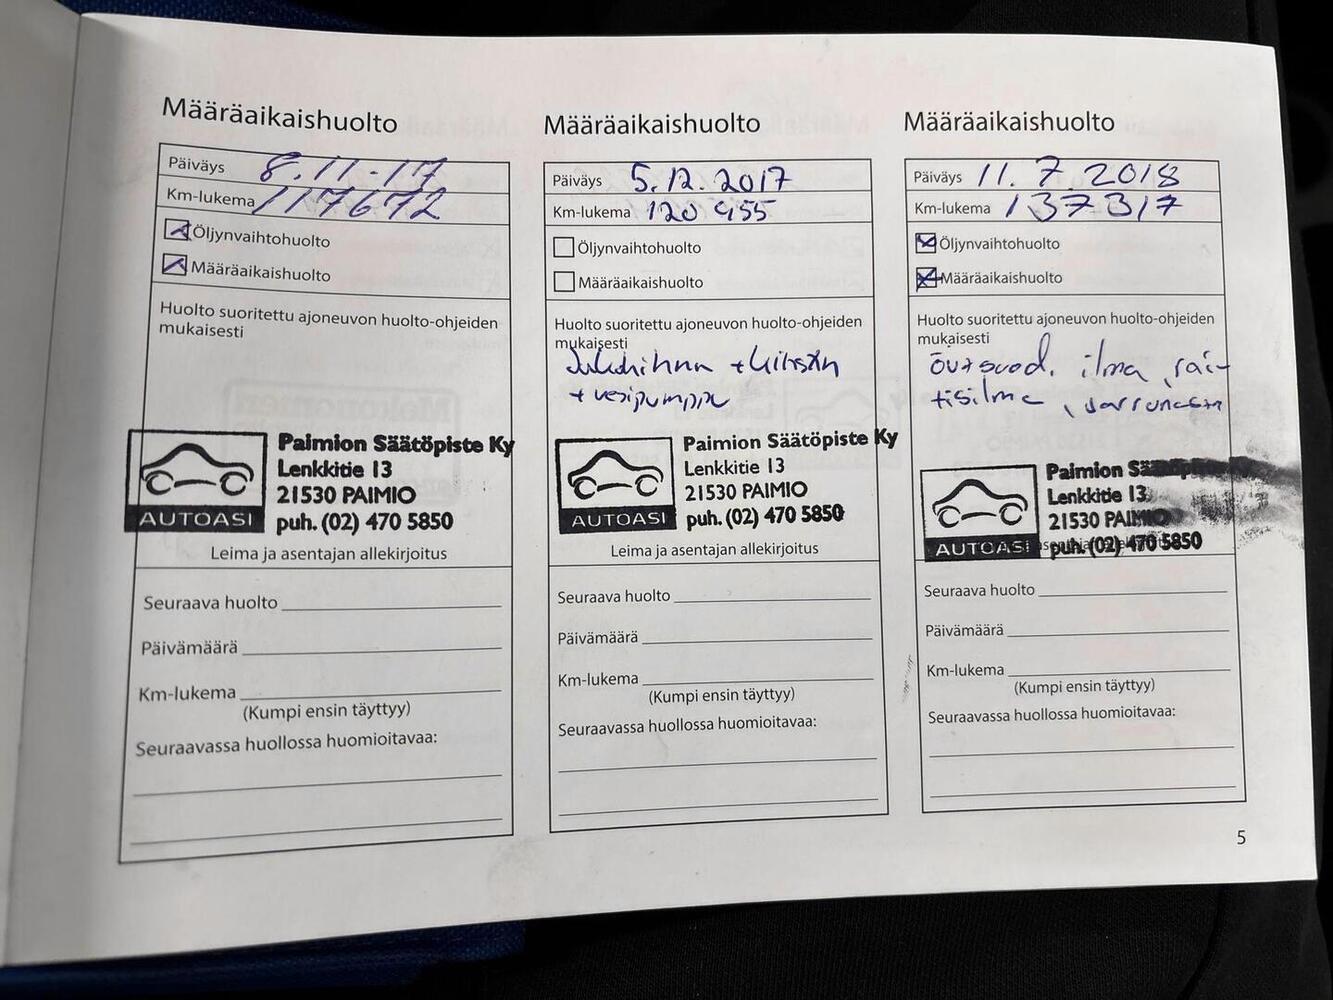 Määräaikaishuolto
Päiväys 8.11.-17
Km-lukema 117672
Öljynvaihtohuolto
Määräaikaishuolto
Huolto suoritettu ajoneuvon huolto-ohjeiden
mukaisesti
Paimion Säätöpiste Ky
Lenkkitie 13
21530 PAIMIO
AUTOASI puh. (02) 470 5850
Leima ja asentajan allekirjoitus
Seuraava huolto
Päivämäärä
Km-lukema
(Kumpi ensin täyttyy)
Seuraavassa huollossa huomioitavaa:
Määräaikaishuolto
Päiväys 5.12.2017
Km-lukema 120 955
Öljynvaihtohuolto
Määräaikaishuolto
Huolto suoritettu ajoneuvon huolto-ohjeiden
mukaisesti
+ vesipumppu
Paimion Säätöpiste Ky
Lenkkitie 13
21530 PAIMIO
AUTOASI puh. (02) 470 5850
Leima ja asentajan allekirjoitus
Seuraava huolto
Päivämäärä
Km-lukema
(Kumpi ensin täyttyy)
Seuraavassa huollossa huomioitavaa:
Määräaikaishuolto
Päiväys 11.7.2018
Km-lukema 137317
Öljynvaihtohuolto
Määräaikaishuolto
Huolto suoritettu ajoneuvon huolto-ohjeiden
mukaisesti
öljysuod. ilma, rai-
tisilma
Paimion Säätöpiste Ky
Lenkkitie 13
21530 PAIMIO
AUTOASI puh. (02) 470 5850
Seuraava huolto
Päivämäärä
Km-lukema
(Kumpi ensin täyttyy)
Seuraavassa huollossa huomioitavaa:
5